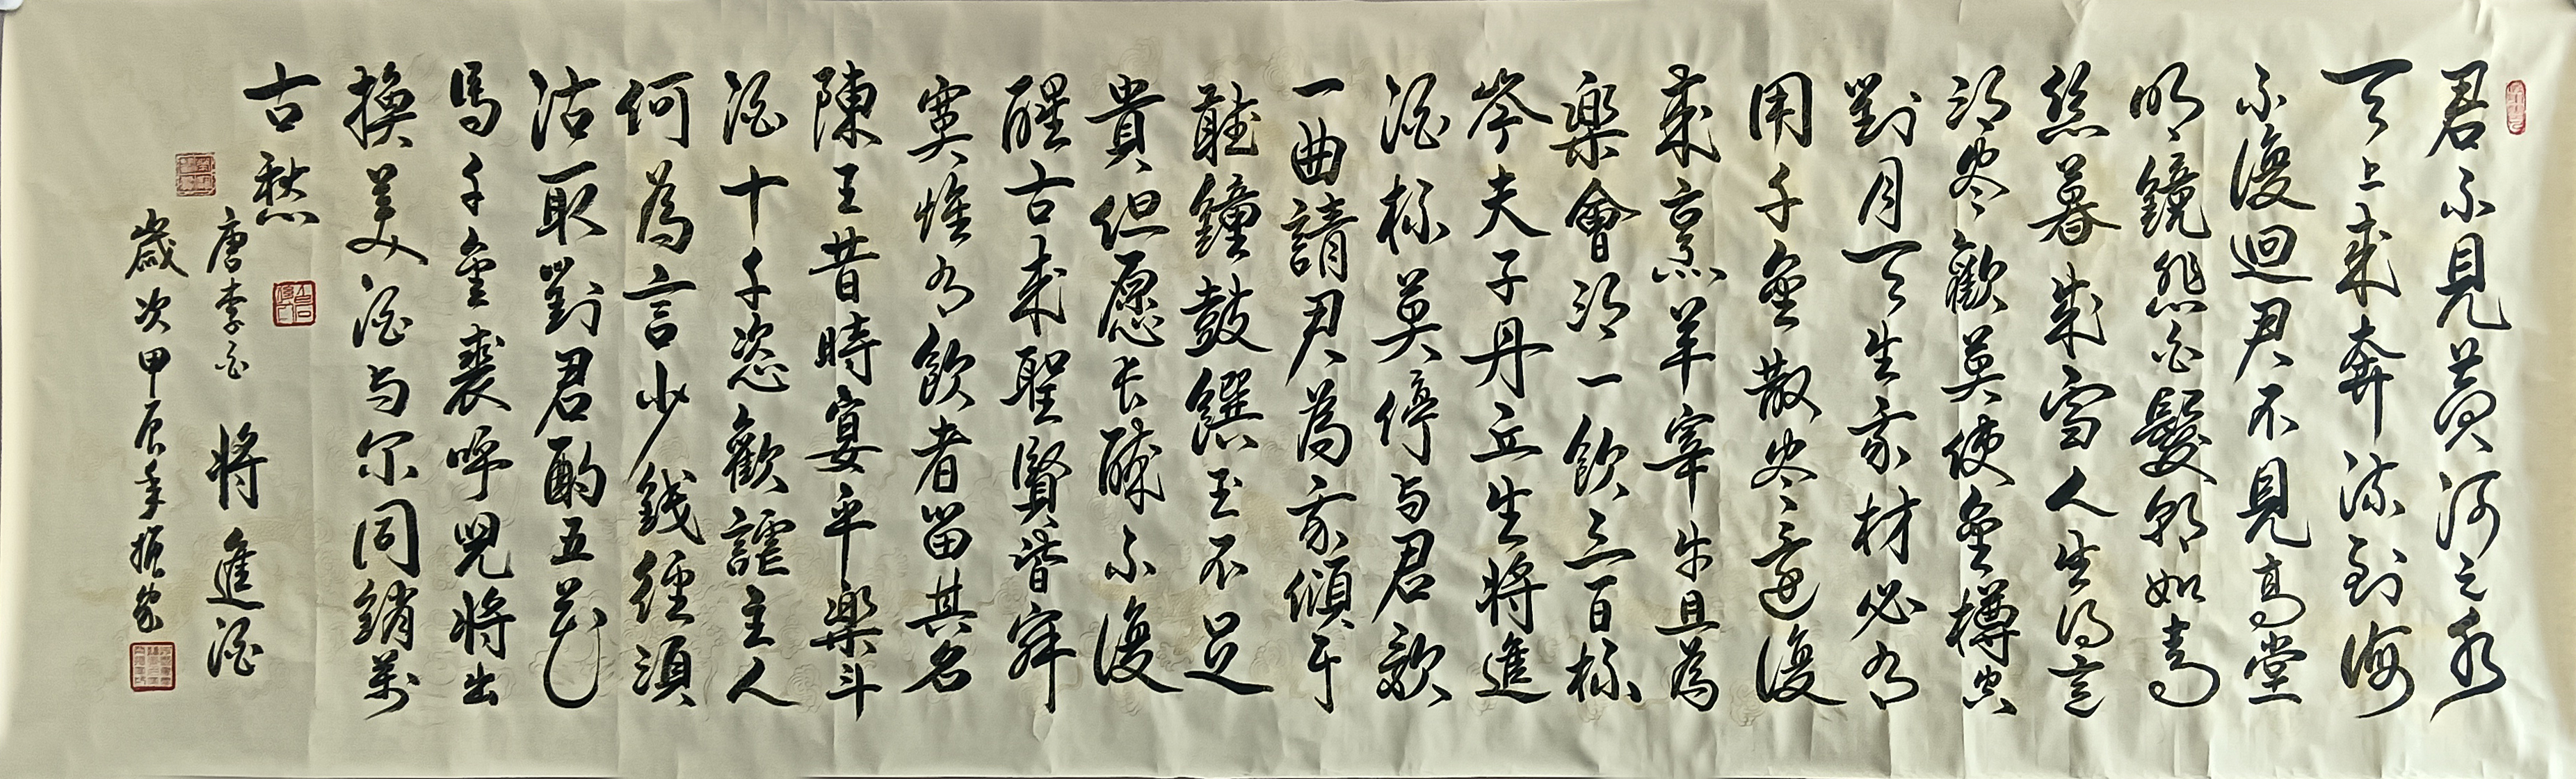 君不見黄河之水
天上来奔流到海
不復迴君不見高堂
明鏡悲白髮朝如青
絲暮成雪人生得意
須尽歡莫使金樽空
對月天生我材必有
用千金散尽還復
来烹羊宰牛且為
樂會須一飲三百杯
岑夫子丹丘生将進
酒杯莫停与君歌
一曲請君為我傾耳
聽鐘鼓饌玉不足
貴但愿长醉不復
醒古来聖賢皆寂
寞惟有飲者留其名
陳王昔時宴平樂斗
酒十千恣歡謔主人
何為言少錢徑須
沽取對君酌五花
馬千金裘呼兒将出
換美酒与尔同銷萬
古愁
唐李白 将進酒
歲次甲辰年振